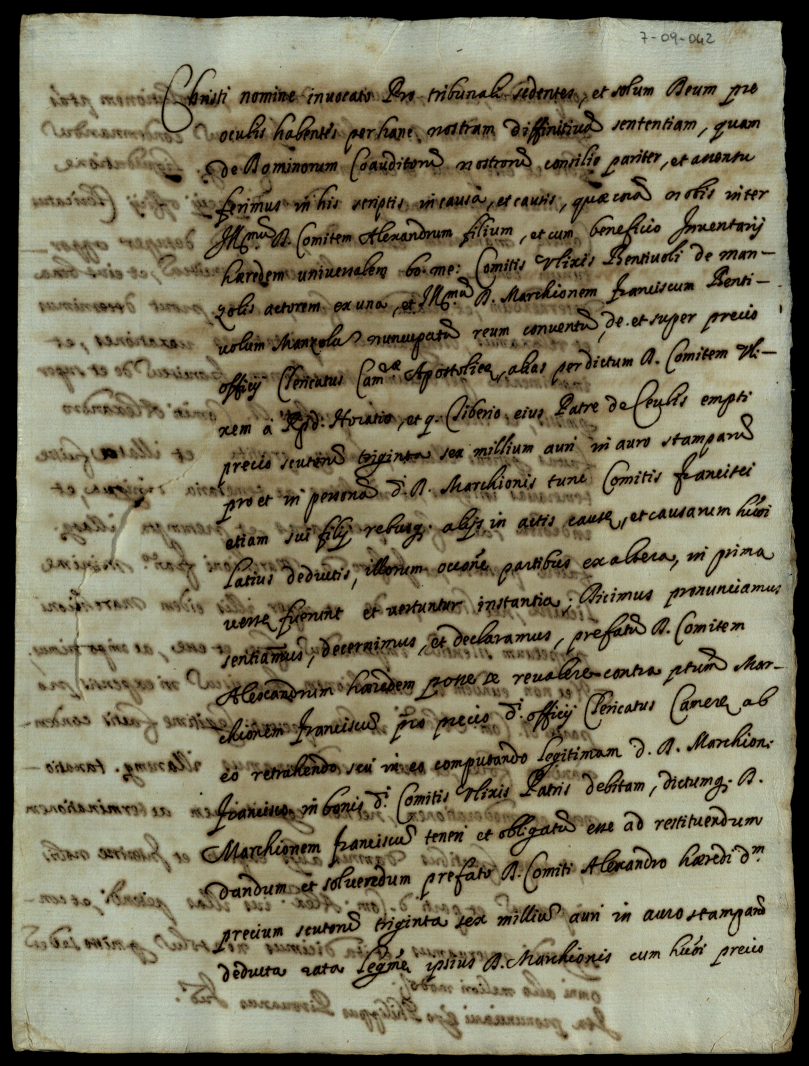 7-09-042
Christi nomine invocato Pro tribunali sedentes, et solum Deum prę
oculis habentes per hanc nostram diffinitivā sententiam, quam
de Dominorum Coauditorū nostrorū consilio pariter, et assensu
ferimus in his scriptis in causa, et causis, quæ corā nobis inter
Ill.mū D. Comitem Alexandrum filium, et cum beneficio Inventarij
hæredem universalem bo: me: Comitis Ulixis Bentivoli de Man-
zolis actorem ex una, et Ill.mū D. Marchionem Franciscum Benti-
volum Manzolū nuncupatū reum conventū, de et super precio
officij Clericatus Cam.ræ Apostolicę, alias per dictum D. Comitem Uli-
xem à R.pd: Horatio, et q. Tiberio eius Patre de Ceulis empti
precio scutorū triginta sex millium auri in auro stamparū
pro et in personā d.i D. Marchionis tunc Comitis Francisci
etiam sui filij rebusq. alijs in actis causę, et causarum hmōi
latius deductis, illorum occōne partibus ex altera, in prima
versę fuerunt et vertuntur instantia; Dicimus pronunciamus
sententiamus, decernimus, et declaramus, prefatū D. Comitem
Alexandrum hæredem posse se revalere contra ptum Mar-
chionem Franciscū pro precio d.i officij Clericatus Camerę ab
eo retrahendo seu in eo computando legitimam d. D. Marchion:
Francisco in bonis d.i Comitis Ulixis Patris debitam, dictumq. D.
Marchionem Franciscū teneri et obligatū esse ad restituendum
dandum et solvendum prefato D. Comiti Alexandro hæredi d.m
precium scutorū triginta sex milliū auri in auro stamparū
deducta rata legmę ipsius D. Marchionis cum hmōi precio